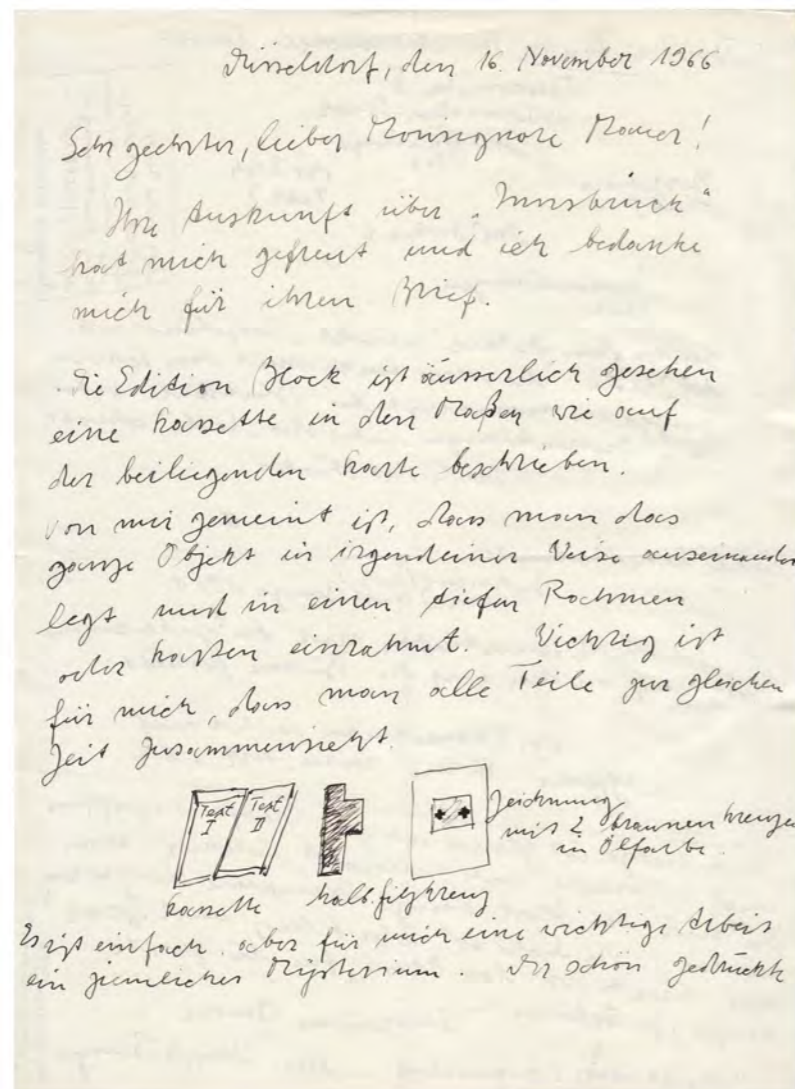 Düsseldorf, den 16. November 1966
Sehr geehrter, lieber Monsignore Mauer!
Ihre Auskunft über „Innsbruck"
hat mich gefreut und ich bedanke
mich für ihren Brief.
Die Edition Block ist äusserlich gesehen
eine Kassette in den Maßen wie auf
der beiliegenden Karte beschrieben.
Von mir gemeint ist, dass man das
ganze Objekt in irgendeiner Weise auseinander
legt und in einen tiefen Rahmen
oder Kasten einrahmt. Wichtig ist
für mich, dass man alle Teile zur gleichen
Zeit zusammensieht.
Text I
Text II
Zeichnung
mit 2 braunen Kreuzen
in Ölfarbe.
Kassette
halb. filzkreuz
Es ist einfach, aber für mich eine wichtige Arbeit
ein ziemliches Mysterium. Der schön gedruckte